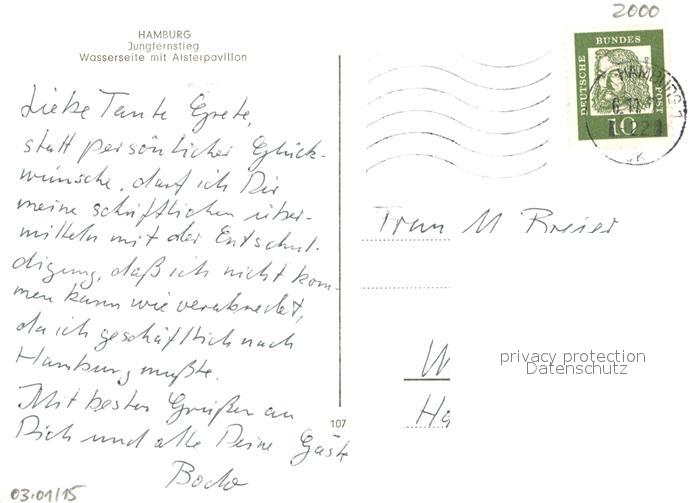 HAMBURG
Jungfernstieg
Wasserseite mit Alsterpavillon
Liebe Tante Grete,
statt persönlicher Glück-
wünsche, darf ich Dir
meine schriftlichen über-
mitteln mit der Entschul-
digung, daß ich nicht kom-
men kann wie verabredet,
da ich geschäftlich nach
Hamburg mußte.
Mit besten Grüßen an
Dich und alle Deine Gäste
Bodo
03.01/15
107
2000
DEUTSCHE BUNDES POST
10
HAMBURG 1
Frau M Breier
W
Ha
privacy protection
Datenschutz